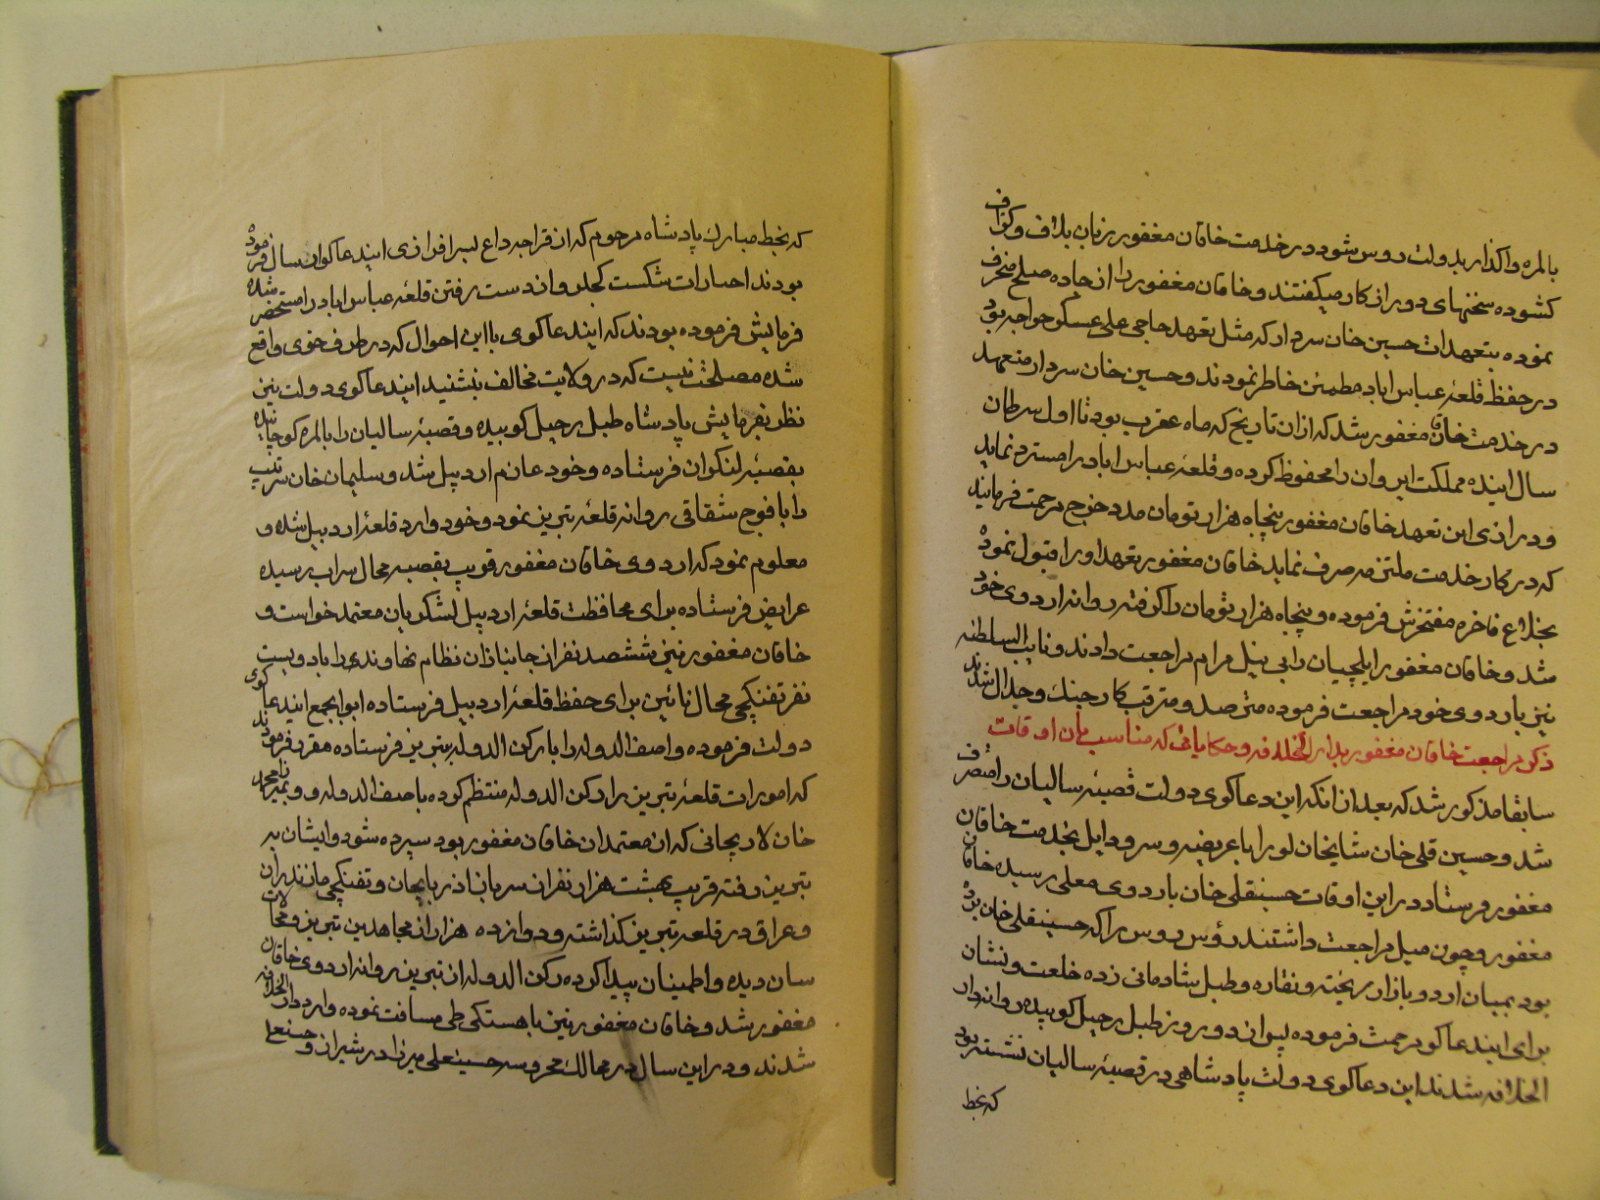 بالمره واکذار بدولت روس شود در خدمت خاقان مغفور زبان بلاف و کزاف
کشوده سخنهای دور از کار میکفتند و خاقان مغفور را از جاده صلح منحرف
نموده بتعهدات حسین خان سردار که مثل تعهد حاجی علی عسکر خواجه بود
در حفظ قلعهٔ عباس اباد مطمئن خاطر نمودند و حسین خان سردار متعهد
در خدمت خاقان مغفور شد که از ان تاریخ که ماه عقرب بود تا اول سرطان
سال اینده مملکت ایروان را محفوظ کرده و قلعهٔ عباس اباد را مسترد نماید
و در ازی این تعهد خاقان مغفور پنجاه هزار تومان مدد خرج مرحمت فرمایند
که در کار خدمت ملتزمه صرف نماید خاقان مغفور تعهد او را قبول نموده
بخلاع فاخره مفتخرش فرموده و پنجاه هزار تومان را کرفته روانه اردوی خود
شد و خاقان مغفور ایلچیان را بی نیل مرام مراجعت دادند و نایب السلطنه
نیز باردوی خود مراجعت فرموده مترصد و مترقب کار جنك و جدال شدند
ذکر مراجعت خاقان مغفور بدار الخلافه و حکایاتی که مناسب بان اوقات
سابقا مذکور شد که بعد از انکه این دعاکوی دولت قصبهٔ سالیان را متصرف
شد و حسین قلی خان شایخان لو را با عریضه و سر و دایل بخدمت خاقان
مغفور فرستاد در این اوقات حسینقلی خان باردوی معلی رسیده خاقان
مغفور چون میل مراجعت داشتند رؤس روس را که حسینقلی خان برده
بود بمیان اردو بازار ریخته و نقاره و طبل شادمانی زده خلعت و نشان
برای ایندعاکو مرحمت فرموده پس از دو روز طبل رحیل کوبیده روانه دار
الخلافه شدند این دعاکوی دولت پادشاهی در قصبهٔ سالیان نشسته بود
که بخط
که بخط مبارك پادشاه مرحوم که از قراجه داغ بسرافرازی ایندعاکو ارسال فرموده
بودند اخبارات شکست کجلر و از دست رفتن قلعهٔ عباس اباد را مستحضر شده
فرمایش فرموده بودند که ایندعاکوی با این احوال که در طرف خوی واقع
شده مصلحت نیست که در ولایت مخالف بنشنید ایندعاکوی دولت نیز
نظر بفرمایش پادشاه طبل رحیل کوبیده و قصبهٔ سالیان را بالمره کوچانیده
بقصبهٔ لنکران فرستاده و خود عازم اردبیل شد و سلیمان خان سرتیپ
را با فوج شقاقی روانه قلعهٔ تبریز نمود و خود وارد قلعهٔ اردبیل شده و
معلوم نمود که اردوی خاقان مغفور قریب بقصبه محال سراب رسیده
عرایض فرستاده برای محافظت قلعهٔ اردبیل لشکریان معتمد خواست و
خاقان مغفور نیز ششصد نفر از جانبازان نظام نهاوندی را با دویست
نفر تفنکچی محال نائین برای حفظ قلعهٔ اردبیل فرستاده ابوابجمع ایندعاکوی
دولت فرموده و اصف الدوله را با رکن الدوله بتبریز فرستاده مقرر فرمودند
که امورات قلعهٔ تبریز را رکن الدوله منتظم کرده باصف الدوله و و بمیرزا محمد
خان لاریجانی که از معتمدان خاقان مغفور بود سپرده شود و ایشان به
تبریز رفته قریب بهشت هزار نفر از سرباز اذربایجان و تفنکچی مازندران
و عراق در قلعه تبریز کذاشته و دوازده هزار از مجاهدین تبریز و محالات
سان دیده و اطمینان پیدا کرده رکن الدوله از تبریز روانه اردوی خاقان
مغفور شد و خاقان مغفور نیز باهستکی طی مسافت نموده وارد دار الخلافه
شدند و در این سال در ممالك محروسه حسینعلی میرزا در شیراز و حسنعلی